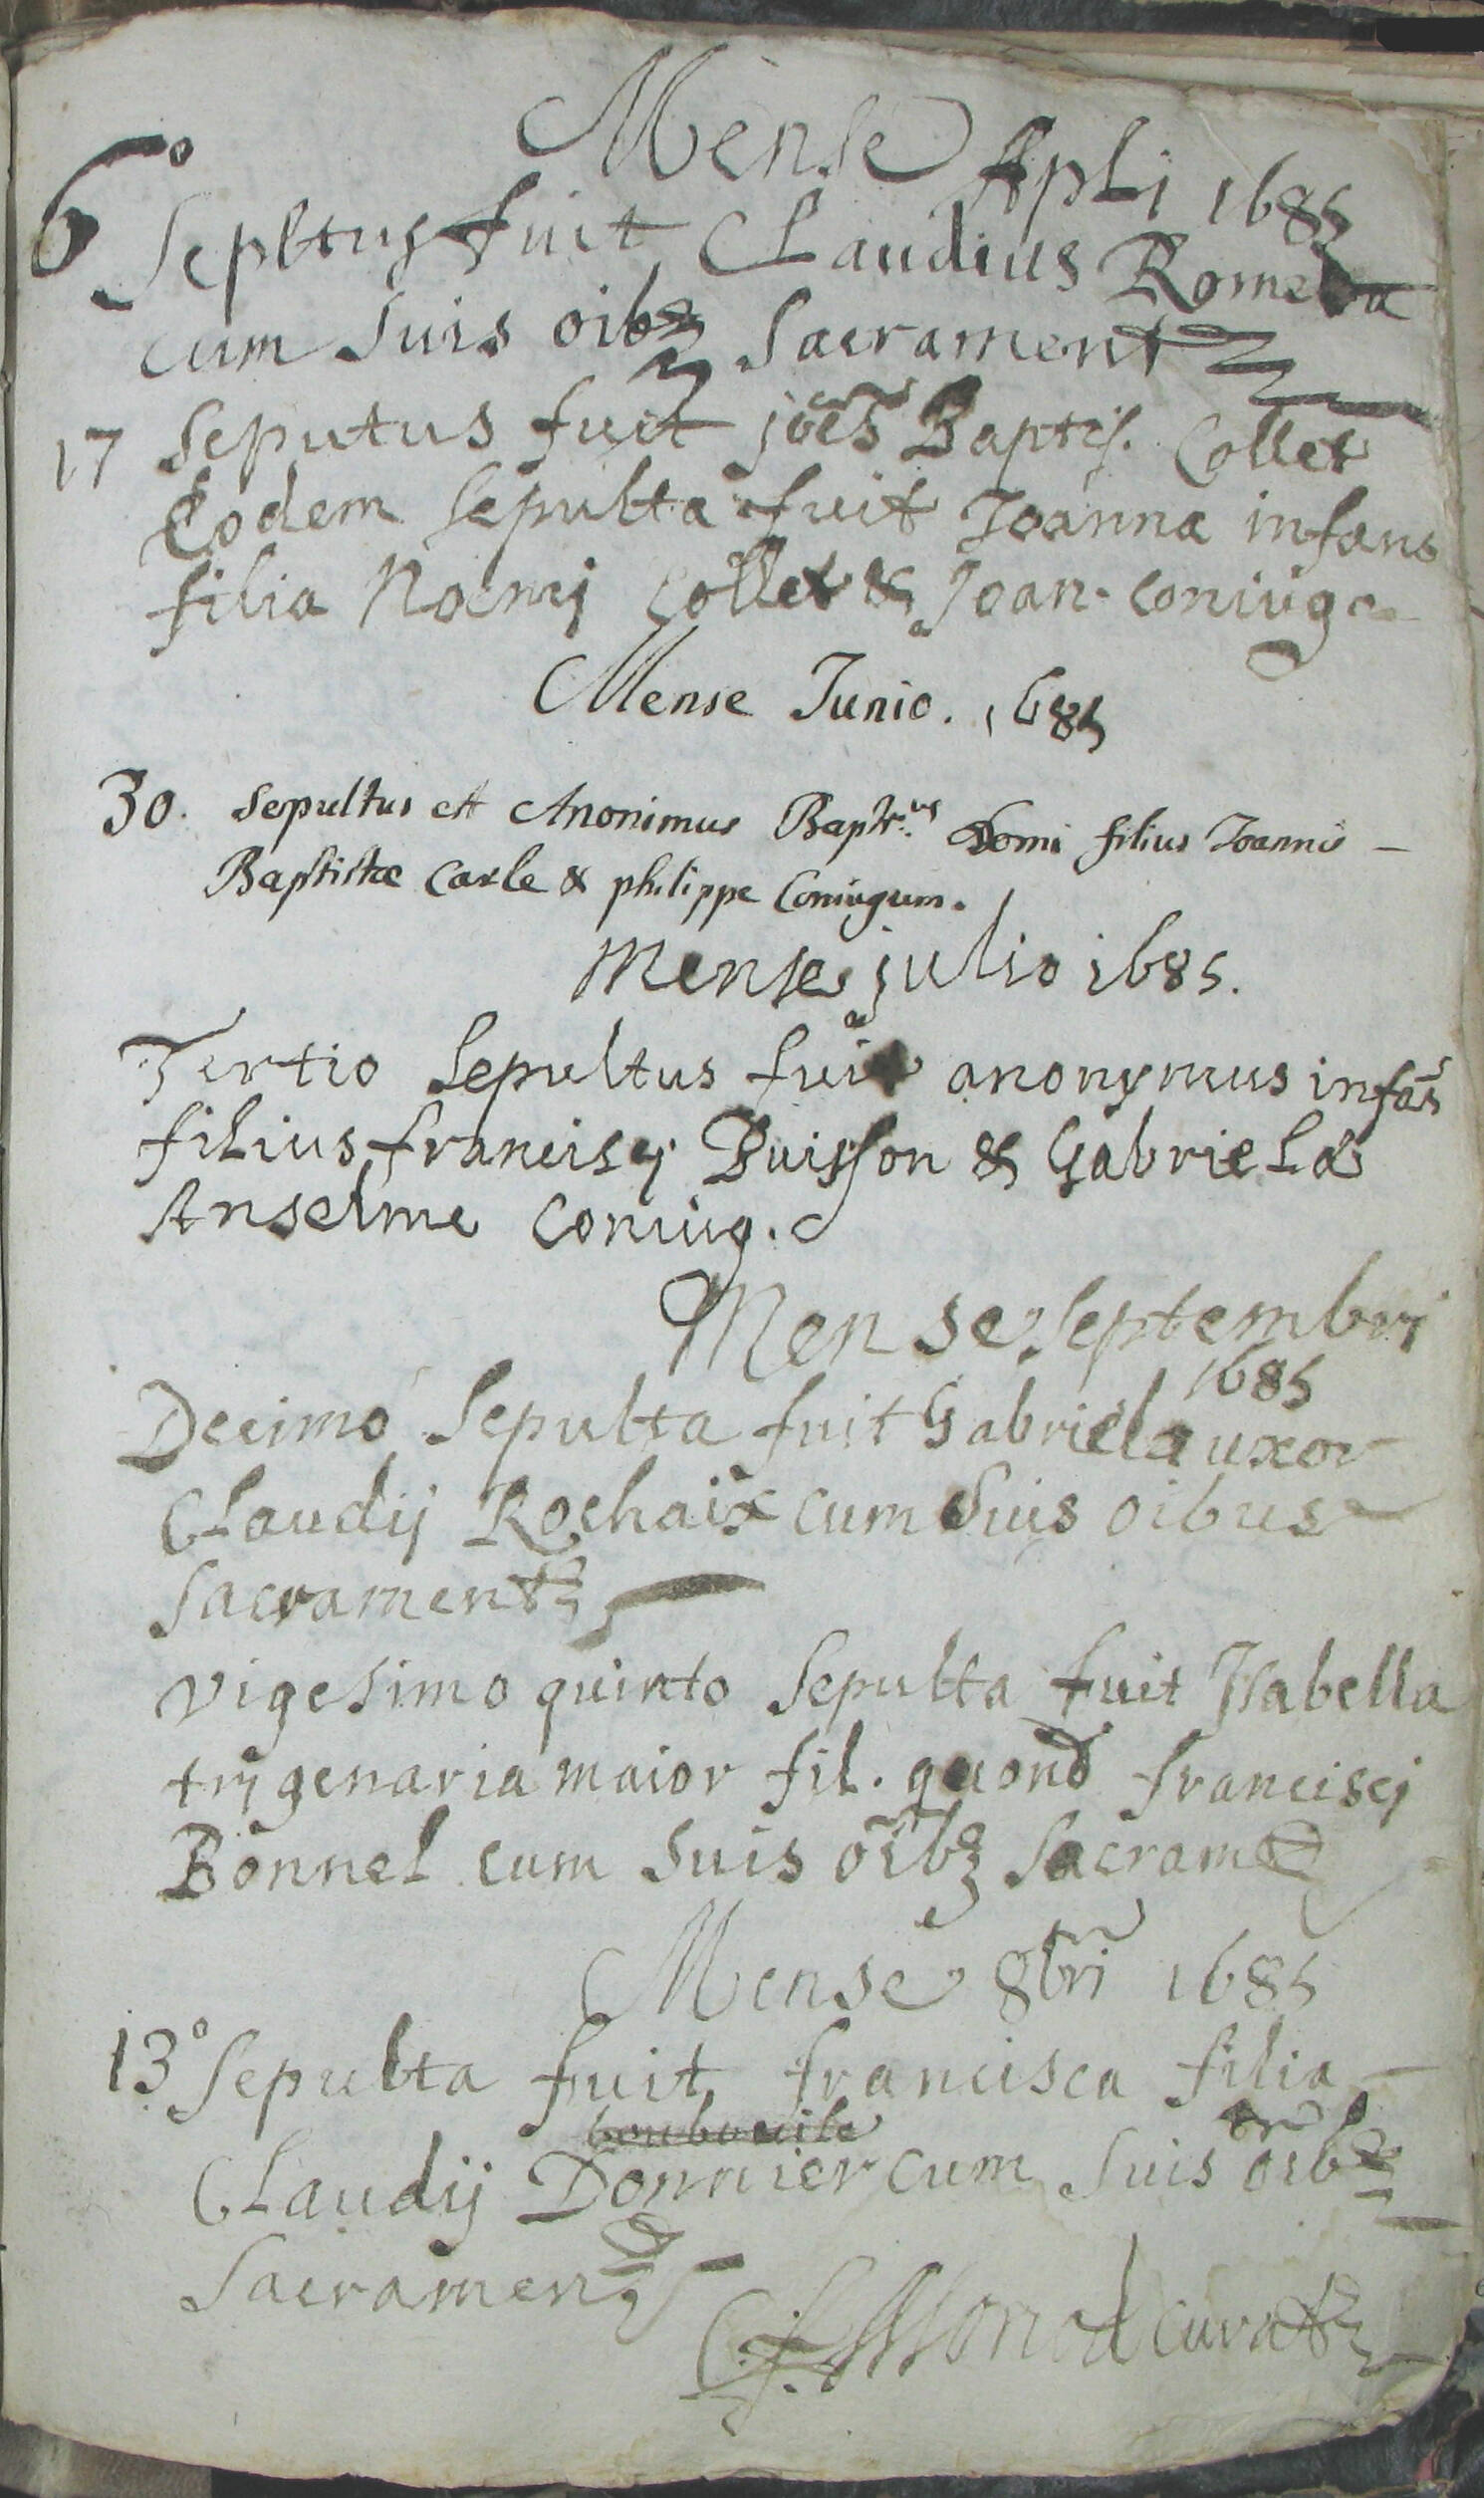 Mense Apli 1685
6° Sepltus fuit Claudius
cum suis oibz Sacrament
17 Seputus fuit joes Baptis. Collet
Eodem Sepulta fuit Joanna infans
filia Collet & Joan. coniug
Mense Junio. 1685
30. Sepultus est Anonimus Bapt.us Domi filius Joannis –
Baptistæ Carle & philippe Coniugum.
Mense julio 1685.
Tertio Sepultus fuit anonymus infãs
filius francisci Buisson & Gabriela
Anselme coniug.
Mense Septembri
1685
Decimo Sepulta fuit Gabriela uxor
Claudij Rochaix cum suis oibus
Sacrament
Vigesimo quinto Sepulta fuit Isabella
trigenaria maior fil. quond francisci
Bonnel cum suis oibz Sacram
Mense 8bri 1685
13° Sepulta fuit francisca filia –
Claudij Donnier cum suis oibz
Sacramen
Monod curat